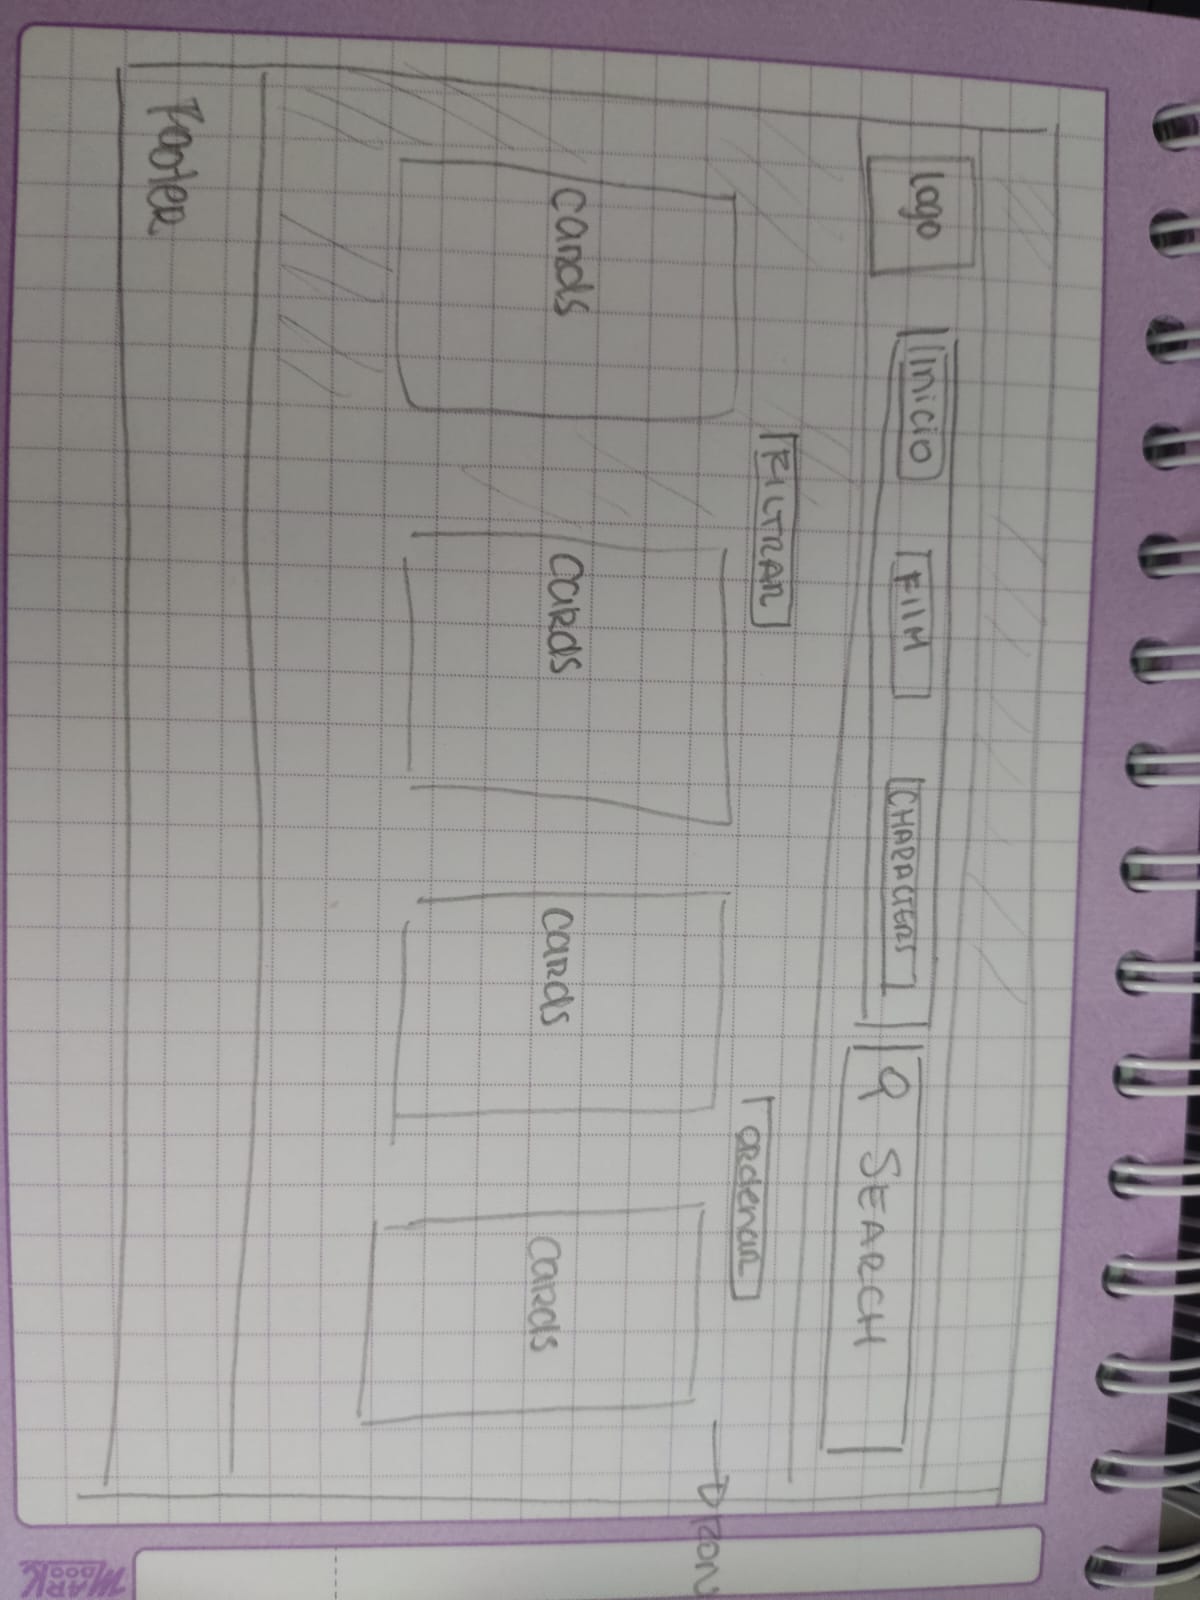 Logo
Inicio
FIlM
CHARACTERS
SEARCH
FILTRAR
ordenar
cards
cards
cards
cards
Footer
MARK
BOOK